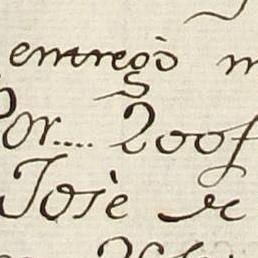 entregò
Por.... 200f
Josè de